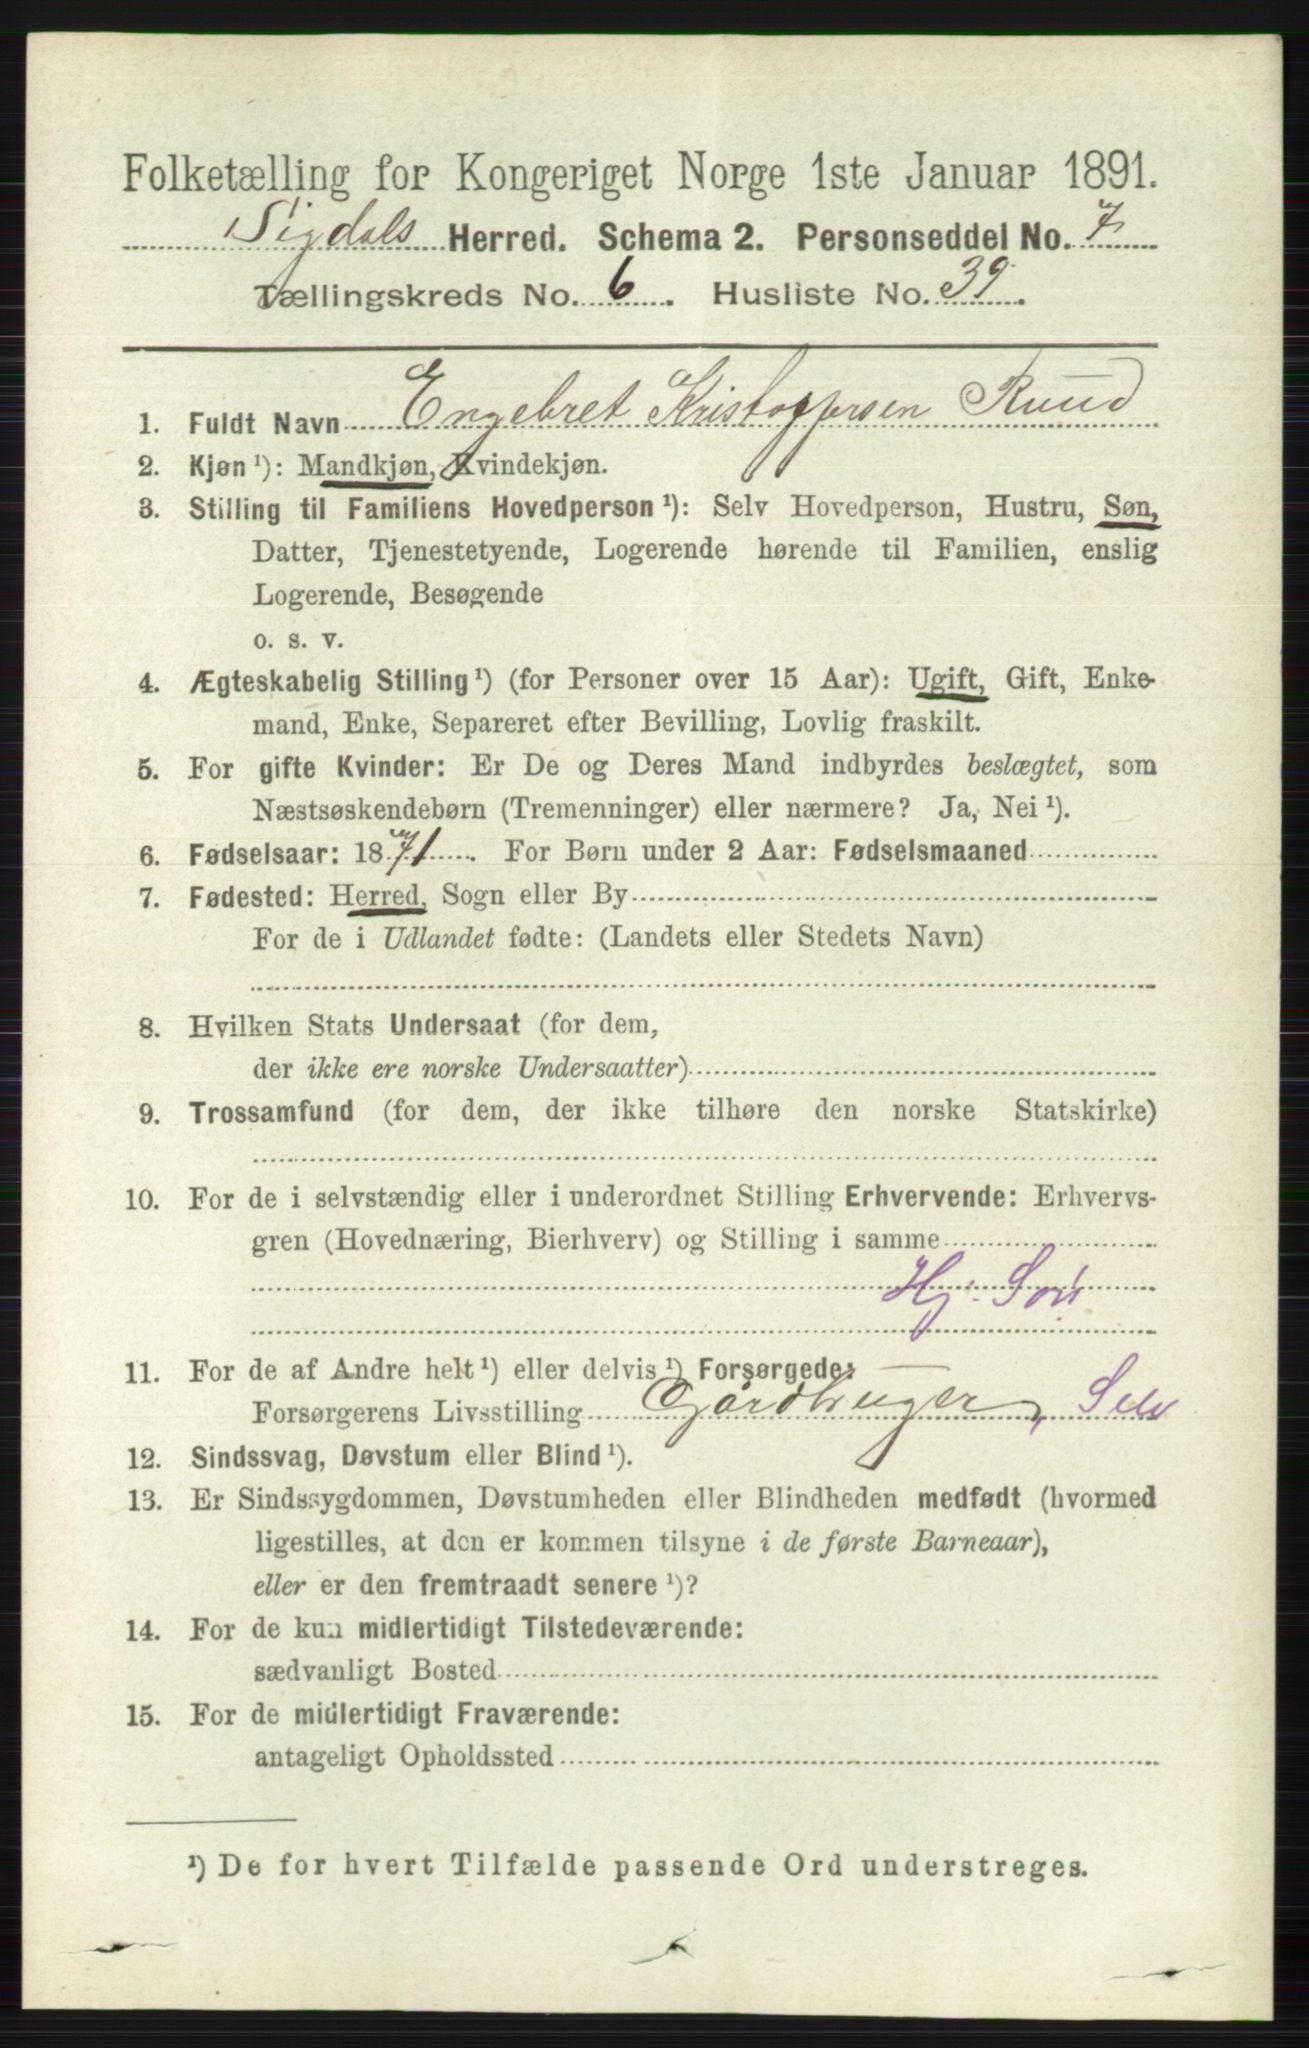 Folketælling for Kongeriget Norge 1ste Januar 1891.
Sigdals Herred. Schema 2. Personseddel No. 7
Tællingskreds No. 6. Husliste No. 39.
1. Fuldt Navn Engebret Kristoffersen Ruud
2. Kjøn¹): Mandkjøn, Kvindekjøn.
3. Stilling til Familiens Hovedperson¹): Selv Hovedperson, Hustru, Søn,
Datter, Tjenestetyende, Logerende hørende til Familien, enslig
Logerende, Besøgende
o. s. v.
4. Ægteskabelig Stilling¹) (for Personer over 15 Aar): Ugift, Gift, Enke-
mand, Enke, Separeret efter Bevilling, Lovlig fraskilt.
5. For gifte Kvinder: Er De og Deres Mand indbyrdes beslægtet, som
Næstsøskendebørn (Tremenninger) eller nærmere? Ja, Nei¹).
6. Fødselsaar: 1871. For Børn under 2 Aar: Fødselsmaaned
7. Fødested: Herred, Sogn eller By
For de i Udlandet fødte: (Landets eller Stedets Navn)
8. Hvilken Stats Undersaat (for dem,
der ikke ere norske Undersaatter)
9. Trossamfund (for dem, der ikke tilhøre den norske Statskirke)
10. For de i selvstændig eller i underordnet Stilling Erhvervende: Erhvervs-
gren (Hovednæring, Bierhverv) og Stilling i samme
Hj. Søn
11. For de af Andre helt¹) eller delvis¹) Forsørgede:
Forsørgerens Livsstilling Gårdbruger, Selv
12. Sindssvag, Døvstum eller Blind¹).
13. Er Sindssygdommen, Døvstumheden eller Blindheden medfødt (hvormed
ligestilles, at den er kommen tilsyne i de første Barneaar),
eller er den fremtraadt senere¹)?
14. For de kun midlertidigt Tilstedeværende:
sædvanligt Bosted
15. For de midlertidigt Fraværende:
antageligt Opholdssted
¹) De for hvert Tilfælde passende Ord understreges.